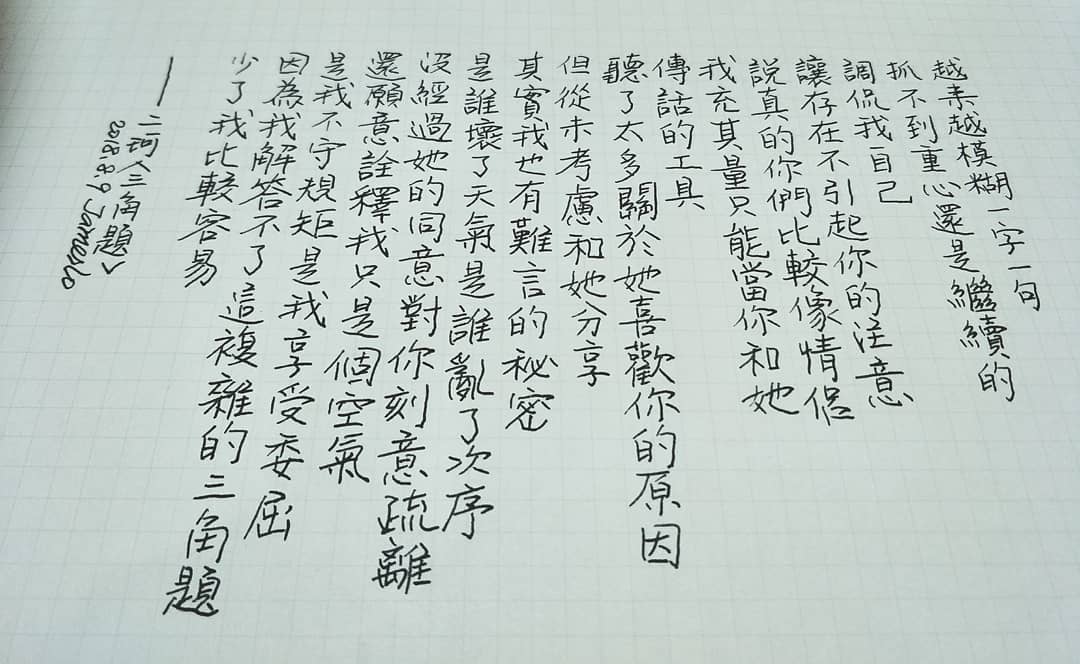 越来越模糊一字一句
抓不到重心還是繼續的
調侃我自己
讓存在不引起你的注意
說真的你們比較像情侶
我充其量只能當你和她
傳話的工具
聽了太多關於她喜歡你的原因
但從未考慮和她分享
其實我也有難言的秘密
是誰壞了天氣是誰亂了次序
沒經過她的同意對你刻意疏離
還願意詮釋我只是個空氣
是我不守規矩是我享受委屈
因為我解答不了這複雜的三角題
少了我比較容易
——二問〈三角題〉
2018.8.9